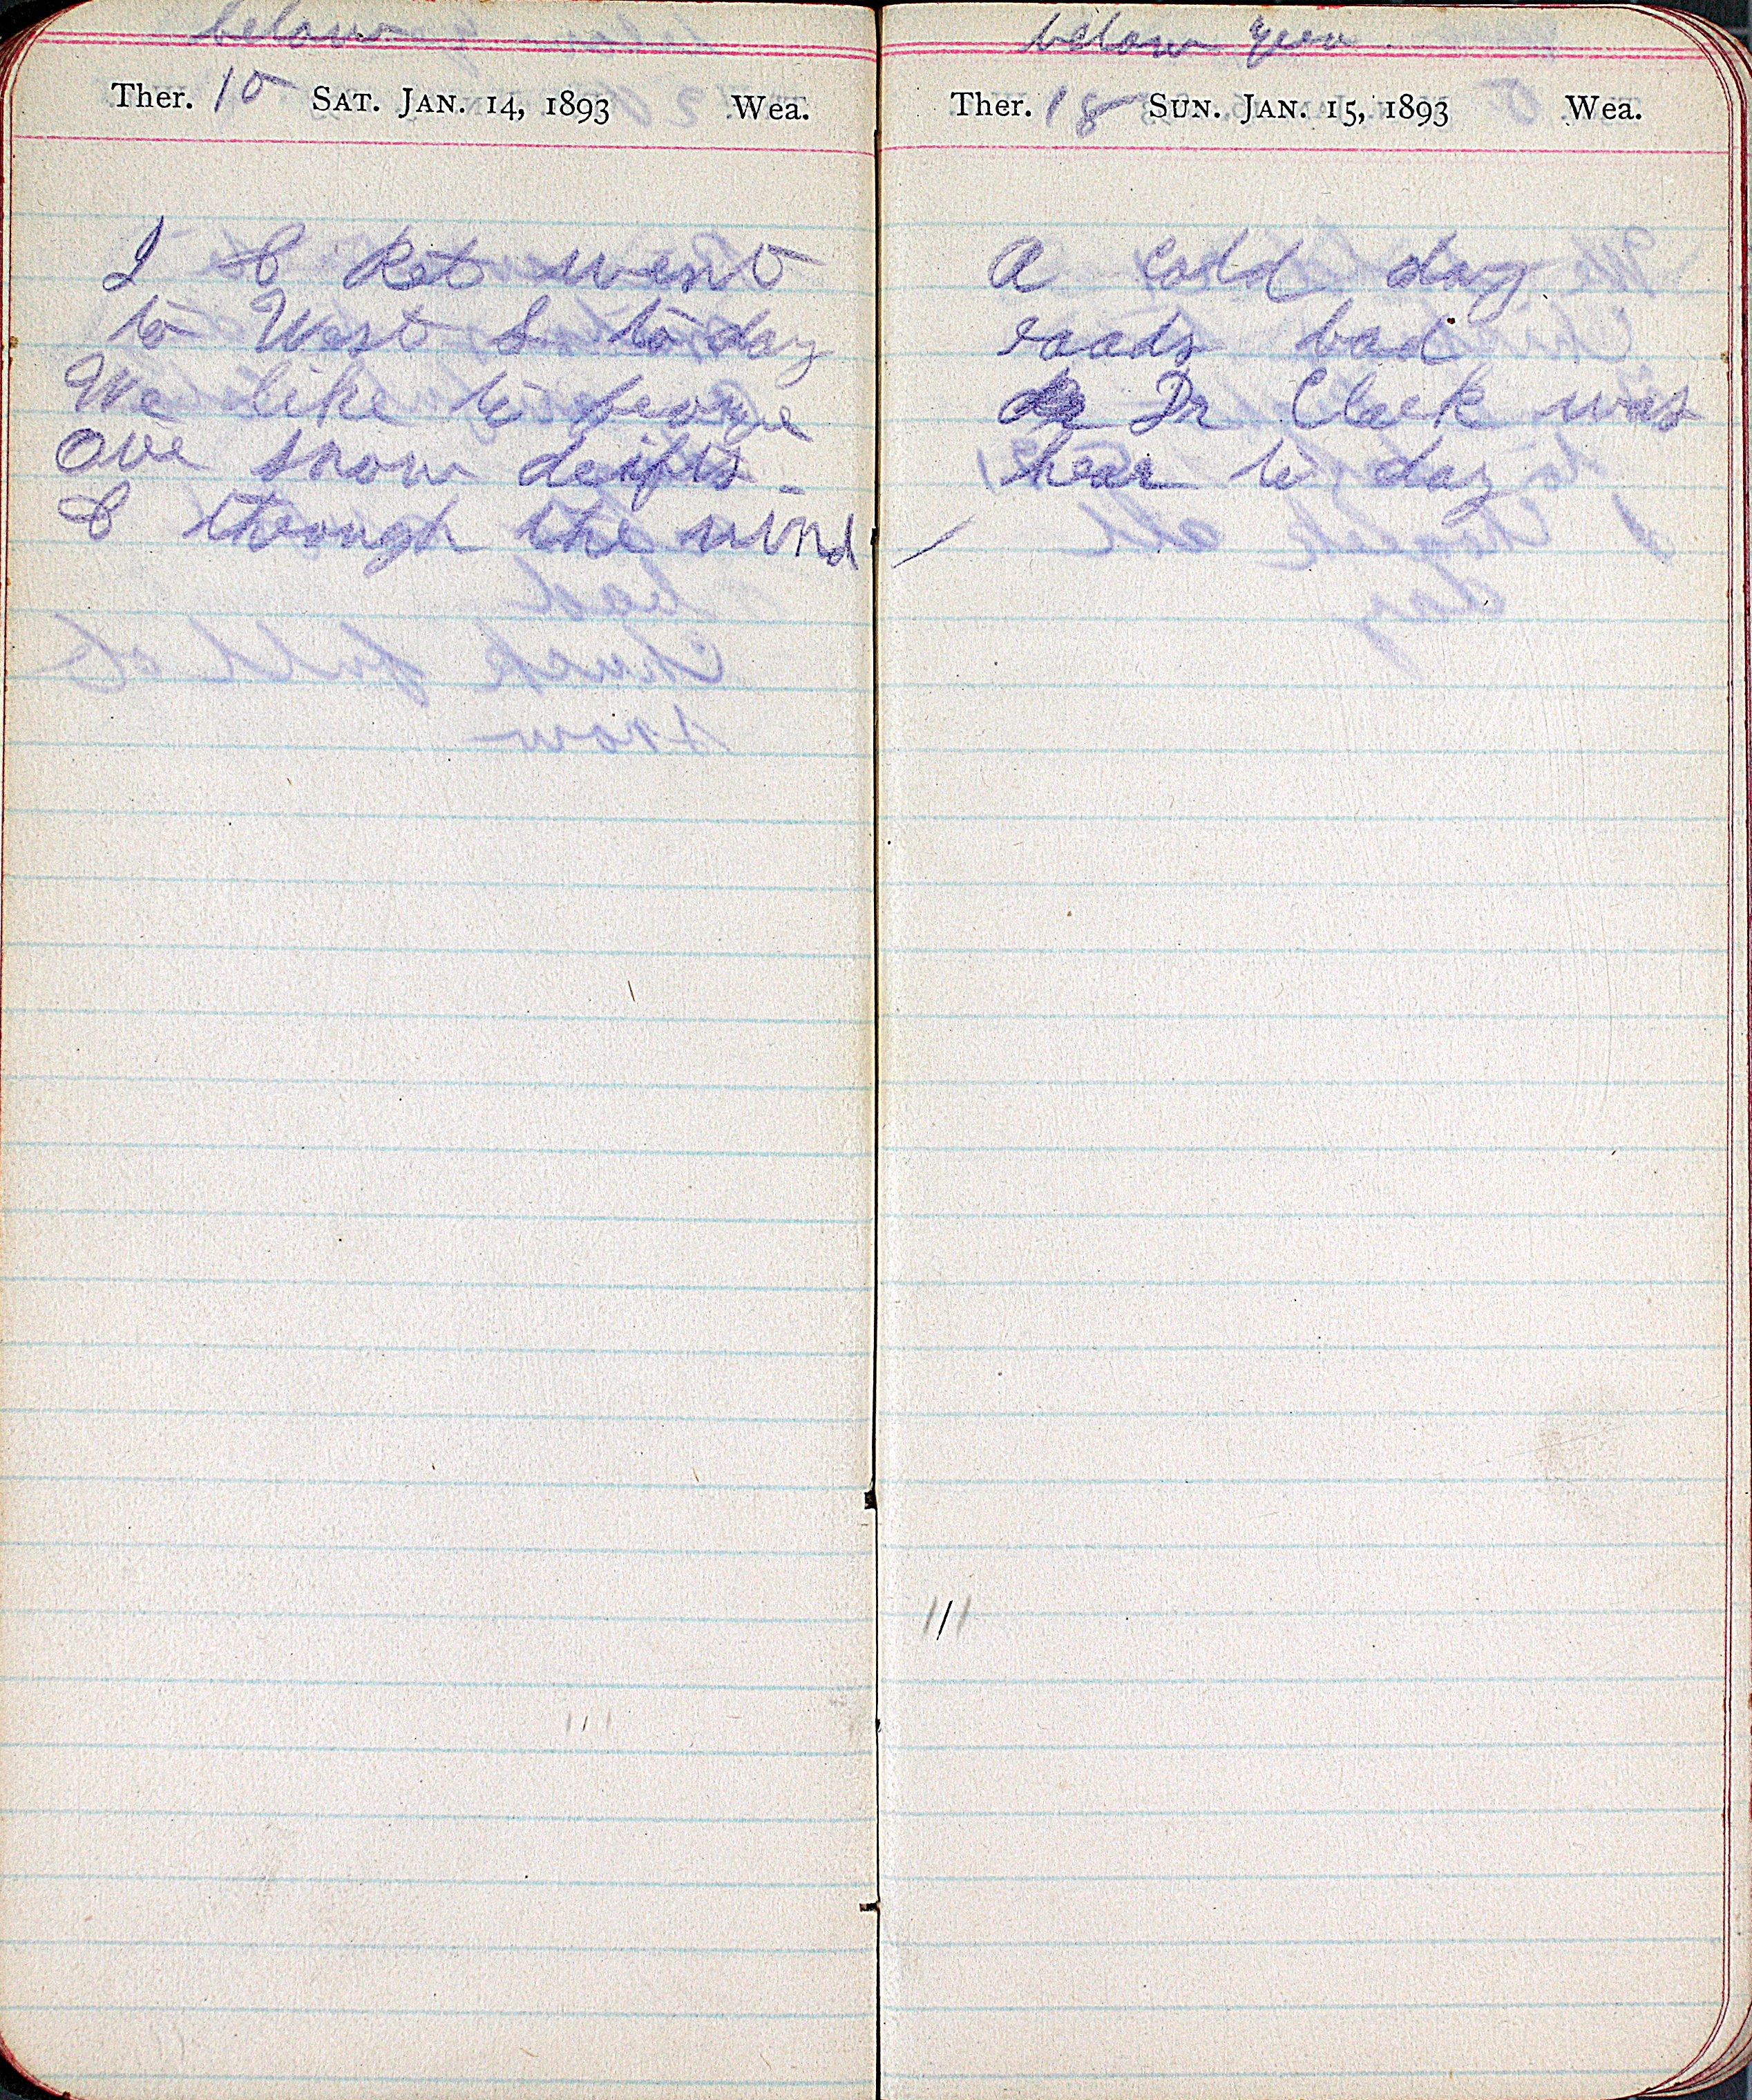 below
Ther. 10 SAT. JAN. 14, 1893 Wea.
I & Ket went
to West S to day
We like to
Ove snow drifts -
& through the wind
below zero.
Ther. 18 SUN. JAN. 15, 1893 Wea.
A Cold day
roads bad
Dr Clark was
hear to day